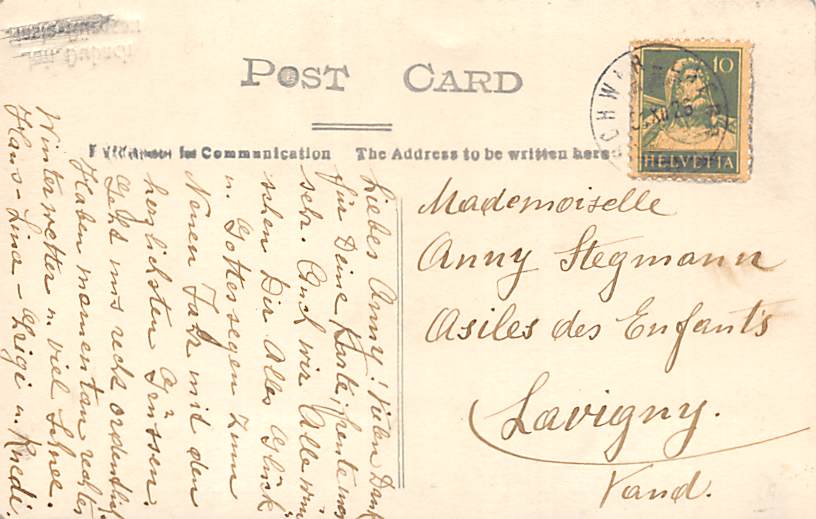 POST CARD
for Communication
The Address to be written here
10
HELVETIA
Mademoiselle
Anny Stegmann
Asiles des Enfants
Lavigny.
Vaud.
Liebes Anny! Vielen Dank
für Deine Karte, freute uns
sehr. Auch wir Alle wün
schen Dir Alles Glück
u. Gottessegen zum
Neuen Jahr mit den
herzlichsten Grüssen.
Geht uns recht ordentlich
Haben momentan rechtes
Winterwetter u. viel Schnee.
Hans - Lina - u. Ruedi.